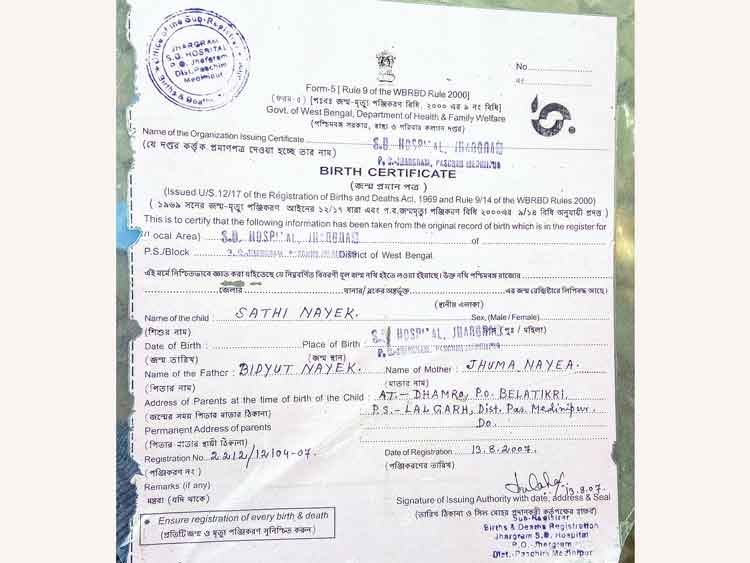 Office of the Sub-Registrar
JHARGRAM
S.D. HOSPITAL
P.O. Jhargram
Dist. Paschim
Medinipur
Births & Deaths
No.
নং
Form-5 [ Rule 9 of the WBRBD Rule 2000]
(ফরম-৫) [পঃবঃ জন্ম-মৃত্যু পঞ্জিকরণ বিধি, ২০০০ এর ৯ নং বিধি]
Govt. of West Bengal, Department of Health & Family Welfare
(পশ্চিমবঙ্গ সরকার, স্বাস্থ্য ও পরিবার কল্যাণ দপ্তর)
Name of the Organization Issuing Certificate S.D. HOSPITAL, JHARGRAM
(যে দপ্তর কর্তৃক প্রমাণপত্র দেওয়া হচ্ছে তার নাম) P. S.-JHARGRAM, PASCHIM MEDINIPUR
BIRTH CERTIFICATE
(জন্ম প্রমান পত্র)
(Issued U/S.12/17 of the Registration of Births and Deaths Act, 1969 and Rule 9/14 of the WBRBD Rules 2000)
(১৯৬৯ সনের জন্ম-মৃত্যু পঞ্জিকরণ আইনের ১২/১৭ ধারা এবং প.ব.জন্মমৃত্যু পঞ্জিকরণ বিধি ২০০০এর ৯/১৪ বিধি অনুযায়ী প্রদত্ত)
This is to certify that the following information has been taken from the original record of birth which is in the register for
(Local Area) S.D. HOSPITAL, JHARGRAM of
P.S./Block District of West Bengal.
এই মর্মে নিশ্চিতভাবে জ্ঞাত করা যাইতেছে যে নিম্নবর্ণিত বিবরণী মূল জন্ম নথি হইতে লওয়া হইয়াছে। উক্ত নথি পশ্চিমবঙ্গ রাজ্যের
জেলার থানার/ব্লকের অন্তর্ভুক্ত এর জন্ম রেজিষ্টারে লিপিবদ্ধ আছে।
(স্থানীয় এলাকা)
Name of the child : SATHI NAYEK. Sex, (Male / Female)
(শিশুর নাম) লিঙ্গ (পুং / মহিলা)
Date of Birth : Place of Birth S.D. HOSPITAL, JHARGRAM
(জন্ম তারিখ) (জন্ম স্থান)
Name of the Father : BIDYUT NAYEK. Name of Mother : JHUMA NAYEK.
(পিতার নাম) (মাতার নাম)
Address of Parents at the time of birth of the Child : AT.- DHAMRO, P.O. BELATIKRI
(জন্মের সময় পিতার মাতার ঠিকানা) P.S.- LALGARH, Dist. Pas. Medinipur.
Permanent Address of parents Do.
(পিতার মাতার স্থায়ী ঠিকানা)
Registration No. 2212/12104-07. Date of Registration 13.8.2007.
(পঞ্জিকরণ নং ) (পঞ্জিকরণের তারিখ)
Remarks (if any) 13.8.07.
মন্তব্য (যদি থাকে) Signature of Issuing Authority with date, address & Seal
(তারিখ ঠিকানা ও সিল মোহর প্রদানকারী কর্তৃপক্ষের স্বাক্ষর)
Ensure registration of every birth & death
(প্রতিটি জন্ম ও মৃত্যু পঞ্জিকরণ সুনিশ্চিত করুন)
Sub-Registrar
Births & Deaths Registration
Jhargram S.D. Hospital
P.O.-Jhargram
Dist.-Paschim Medinipur